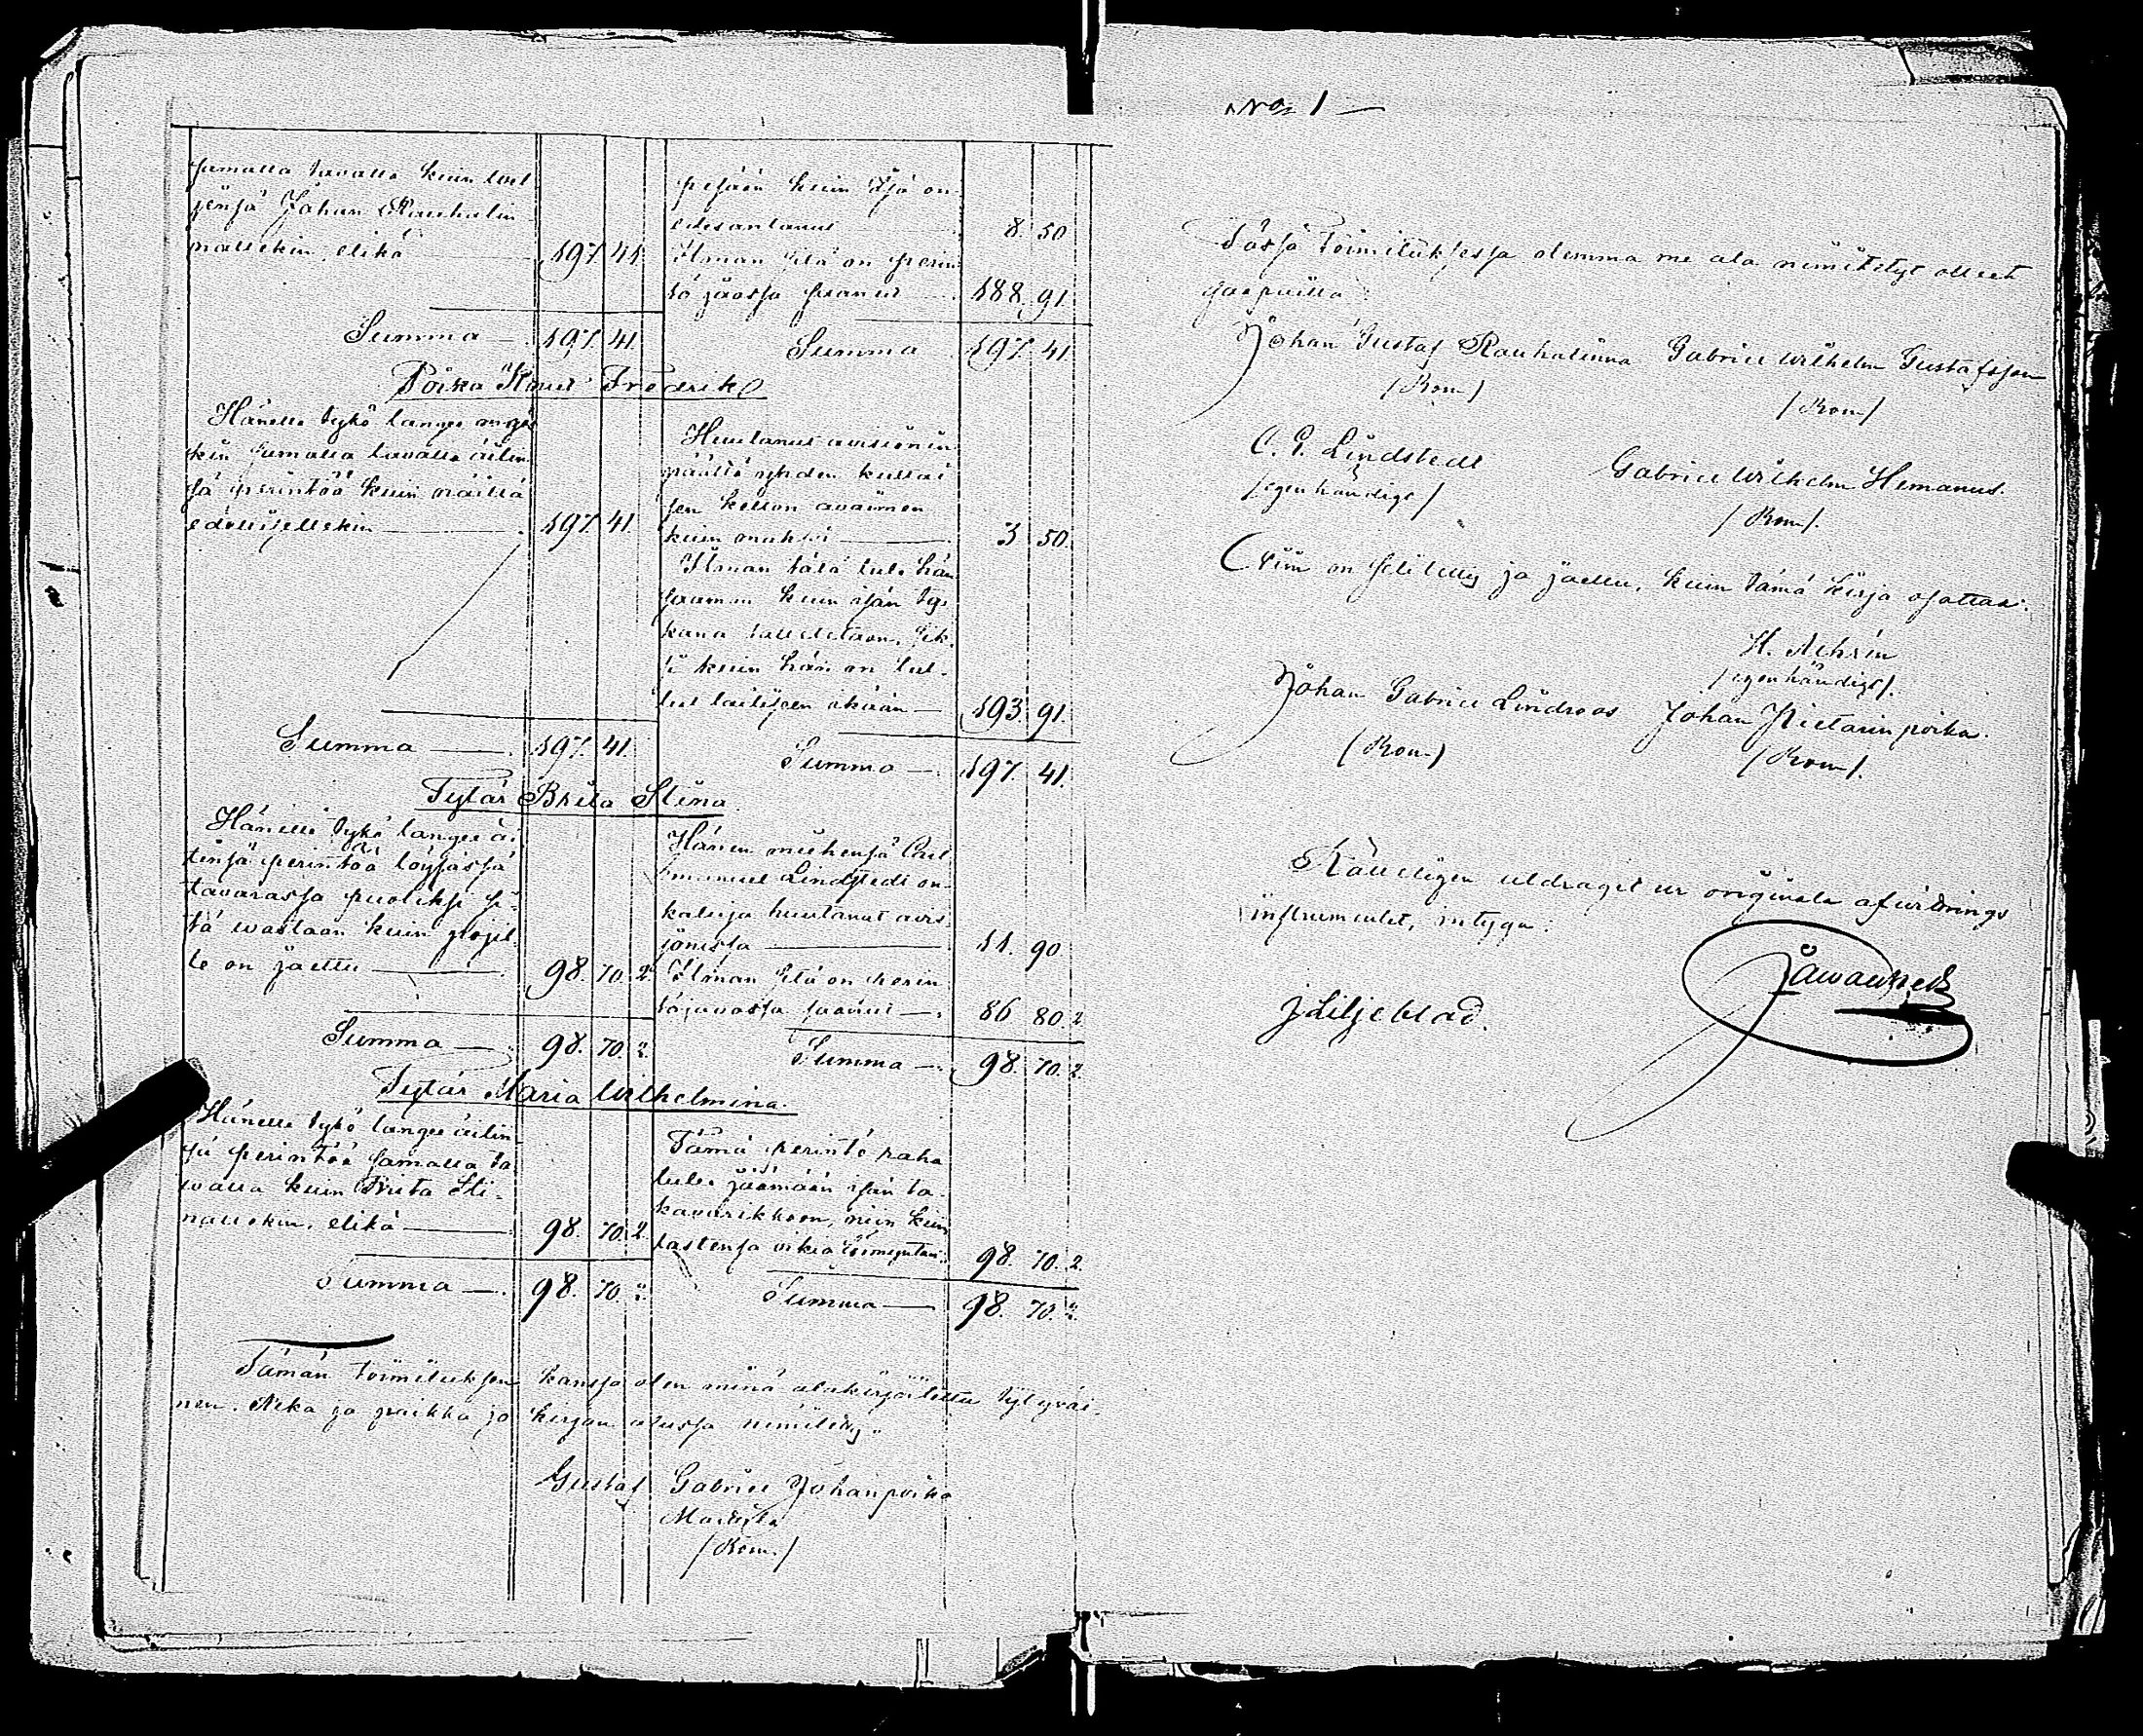 No 1
samalla tavalla kuin vel
jensä Johan Rauhalin
nallekin, elikä 197 41
Summa 197 41
pesään kuin Isä on
edesantanut 8. 50
Ilman sitä on perin
tö jaossa saanut 188. 91.
Summa 197 41
Poika Knut Fredrik
Hänelle tykö langee myös
kin samalla tavalla äitin
sä perintöö kuin näillä
edellisellekin 197 41.
Summa 197. 41.
Huutanut avisionin
päällä yhden kultai
sen kellon avaimen
kuin maksoi 3 50.
Ilman tätä tule hän
saaman kuin isän ty
kana talletetaan, sik
si kuin hän on tul-
lut lailisen ikään 193 91.
Summa 197. 41.
Tytär Brita Stina
Hänelle tykö langee äi
tinsä perintöä löysässä
tavarassa puoleksi si-
tä wastaan kuin pojil
le on jaettu 98. 70. 2
Summa 98. 70. 2
Hänen miehensä Carl
Emanuel Lindstedt on
kaluja huutanut avis
jonissa 11. 90
Ilman sitä on perin
töjaossa saanut 86 80. 2
Summa 98. 70. 2.
Tytär Maria Wilhelmina.
Hänelle tykö langee äitin
sä perintöö samalla ta
walla kuin Brita Sti-
nallekin, elikä 98. 70. 2
Summa 98. 70 2
Tämä perintö raha
tulee jäämään isän ta-
kavarikkoon, niin kuin
lastensa oikia 98. 70. 2
Summa 98. 70. 2.
Tämän toimituksen kanssa olen minä alakirjoitettu tytyväi-
nen. Aika ja paikka jo kirjan alussa nimitetty.
Gustaf Gabriel Johanpoika
Mattila
(Bom.)
Tässä Toimituksessa olemma me ala nimitetyt olleet
saapuilla:
Johan Gustaf Rauhalinna Gabriel Wilhelm Gustafsson
(Bom) (Bom)
C. E. Lindstedt Gabriel Wilhelm Hemanus.
/egenhändigt/ (Bom).
Niin on selitetty ja jaettu, kuin tämä kirja osottaa:
H. Achrén
/egenhändigt/.
Johan Gabriel Lindroos Johan Pietarinpoika.
(Bom) (Bom).
Rätteligen utdraget ur originala afwittrings
instrumentet, intyga:
J Liljeblad.